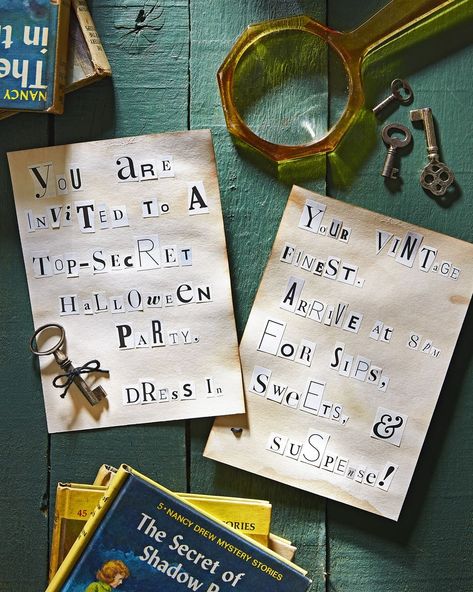 The
in th
NANCY
NANCY
You are
invited to A
Top-Secret
Halloween
Party.
Dress In
Your Vintage
Finest.
Arrive at 8pm
For Sips,
Sweets, &
Suspense!
45
ORIES
5 · NANCY DREW MYSTERY STORIES
The Secret of
Shadow R